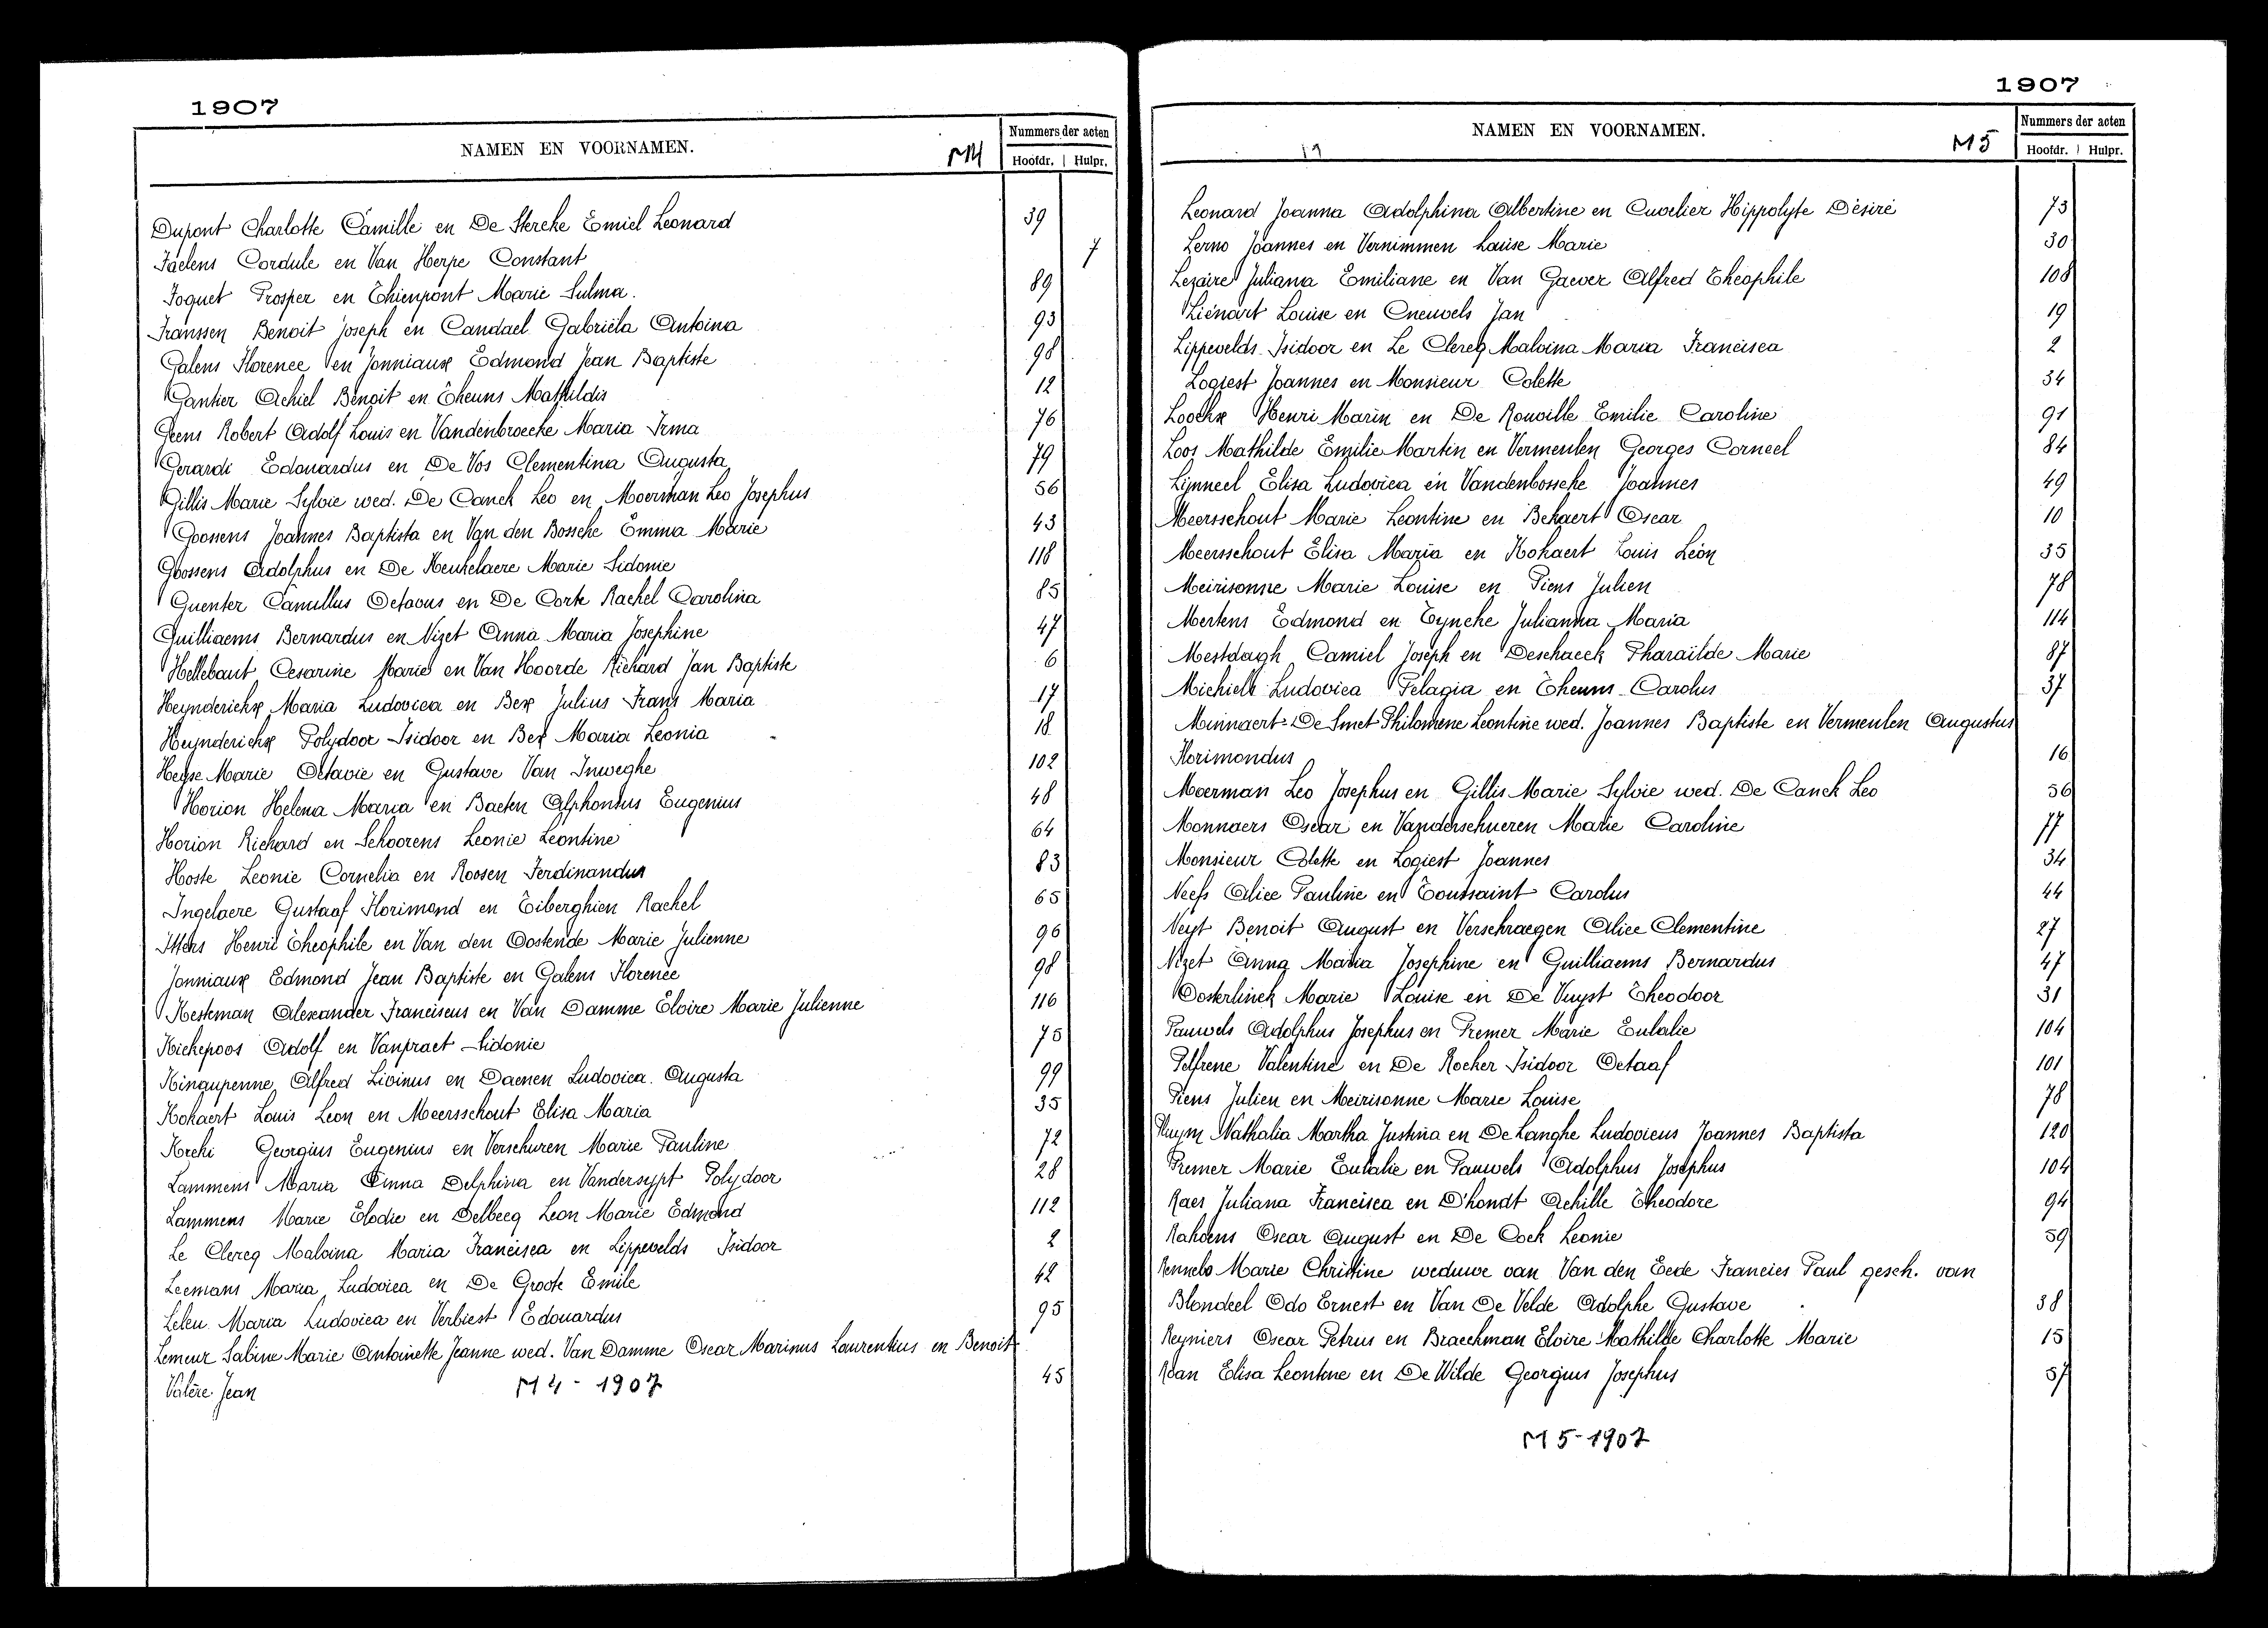 1907
NAMEN EN VOORNAMEN. M4 Nummers der acten
Hoofdr. Hulpr.
Dupont Charlotte Camille en De Stercke Emiel Leonard 39
Faelens Cordule en Van Herpe Constant 7
Foquet Prosper en Thienpont Marie Sulma. 89
Franssen Benoit Joseph en Candael Gabriëla Antoina 93
Galens Florence en Jonniaux Edmond Jean Baptiste 98
Gantier Achiel Benoit en Theuns Mathildis 12
Geens Robert Adolf Louis en Vandenbroecke Maria Irma 76
Gerardi Edouardus en De Vos Clementina Augusta 79
Gillis Marie Sylvie wed. De Canck Leo en Moerman Leo Josephus 56
Goossens Joannes Baptista en Van den Bossche Emma Marie 43
Goossens Adolphus en De Keukelaere Marie Sidonie 118
Guenter Camillus Octavus en De Corte Rachel Carolina 85
Guilliaems Bernardus en Nizet Anna Maria Josephine 47
Hellebaut Cesarine Marie en Van Hoorde Richard Jan Baptiste 6
Heynderickx Maria Ludovica en Bex Julius Frans Maria 17
Heynderickx Polydoor Isidoor en Bex Maria Leonia 18
Heyse Marie Octavie en Gustave Van Inweghe 102
Horion Helena Maria en Baeten Alphonsus Eugenius 48
Horion Richard en Schoorens Leonie Leontine 64
Hoste Leonie Cornelia en Roosen Ferdinandus 83
Ingelaere Gustaaf Florimond en Tiberghien Rachel 65
Itters Henri Theophile en Van den Oostende Marie Julienne 96
Jonniaux Edmond Jean Baptiste en Galens Florence 98
Kesteman Alexander Franciscus en Van Damme Eloire Marie Julienne 116
Kiekepoos Adolf en Vanpraet Sidonie 75
Kinaupenne Alfred Livinus en Daenen Ludovica Augusta 99
Kokaert Louis Leon en Meersschout Elisa Maria 35
Krehi Georgius Eugenius en Verschuren Marie Pauline 72
Lammens Maria Anna Delphina en Vandersypt Polydoor 28
Lammens Marie Elodie en Delbecq Leon Marie Edmond 112
Le Clercq Malvina Maria Francisca en Lippevelds Isidoor 2
Leemans Maria Ludovica en De Groote Emile 42
Leleu Maria Ludovica en Verbiest Edouardus 95
Lemeur Sabine Marie Antoinette Jeanne wed. Van Damme Oscar Marinus Laurentius en Benoit
Valère Jean 45
M4 - 1907
1907
NAMEN EN VOORNAMEN. M5 Nummers der acten
19 Hoofdr. Hulpr.
Leonard Joanna Adolphina Albertine en Cuvelier Hippolyte Désiré 73
Lerno Joannes en Vernimmen Louise Marie 30
Lezaire Juliana Emiliane en Van Gaever Alfred Theophile 108
Liénart Louise en Cneuvels Jan 19
Lippevelds Isidoor en Le Clercq Malvina Maria Francisca 2
Logiest Joannes en Monsieur Colette 34
Loockx Henri Marin en De Rouville Emilie Caroline 91
Loos Mathilde Emilie Martin en Vermeulen Georges Corneel 84
Lijnneel Elisa Ludovica en Vandenbossche Joannes 49
Meersschout Marie Leontine en Bekaert Oscar 10
Meersschout Elisa Maria en Kokaert Louis Léon 35
Meirisonne Marie Louise en Piens Julien 78
Mertens Edmond en Tyncke Julianna Maria 114
Mestdagh Camiel Joseph en Deschaeck Pharaïlde Marie 87
Michiels Ludovica Pelagia en Theuns Carolus 37
Minnaert-De Smet Philomene Leontine wed. Joannes Baptiste en Vermeulen Augustus
Florimondus 16
Moerman Leo Josephus en Gillis Marie Sylvie wed. De Canck Leo 56
Monnaers Oscar en Vanderschueren Marie Caroline 77
Monsieur Colette en Logiest Joannes 34
Neefs Alice Pauline en Toussaint Carolus 44
Neyt Benoit August en Verschraegen Alice Clementine 27
Nizet Anna Maria Josephine en Guilliaems Bernardus 47
Oosterlinck Marie Louise en De Vuyst Theodoor 31
Pauwels Adolphus Josephus en Premer Marie Eulalie 104
Pelfrene Valentine en De Rocker Isidoor Octaaf 101
Piens Julien en Meirisonne Marie Louise 78
Pluym Nathalia Martha Justina en De Langhe Ludovicus Joannes Baptista 120
Premer Marie Eulalie en Pauwels Adolphus Josephus 104
Raes Juliana Francisca en D'hondt Achille Theodore 94
Rahoens Oscar August en De Cock Leonie 59
Rennebo Marie Christine weduwe van Van den Eede Francies Paul gesch. van
Blondeel Odo Ernest en Van De Velde Adolphe Gustave 38
Reyniers Oscar Petrus en Braeckman Eloire Mathilde Charlotte Marie 15
Roan Elisa Leontine en De Wilde Georgius Josephus 57
M5-1907